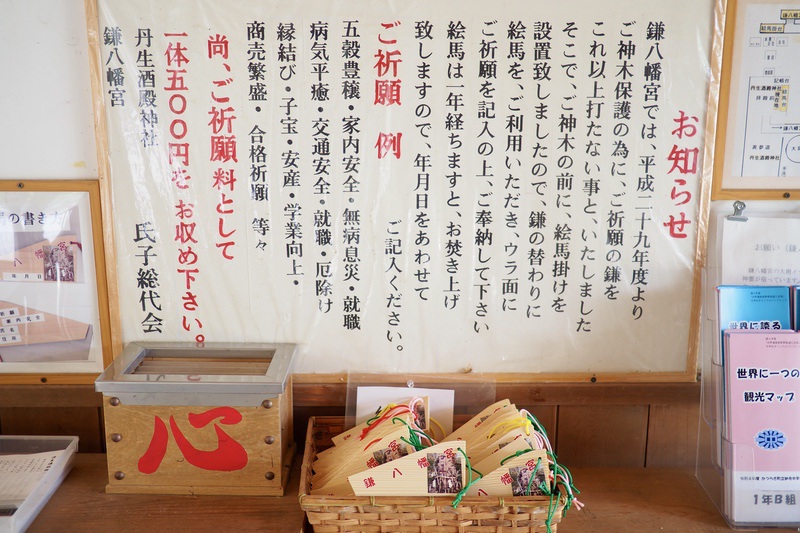 お知らせ
鎌八幡宮では、平成二十九年度より
ご神木保護の為に、ご祈願の鎌を
これ以上打たない事と、いたしました
そこで、ご神木の前に、絵馬掛けを
設置致しましたので、鎌の替わりに
絵馬を、ご利用いただき、ウラ面に
ご祈願を記入の上、ご奉納して下さい
絵馬は一年経ちますと、お焚き上げ
致しますので、年月日をあわせて
ご記入ください。
ご祈願 例
五穀豊穣・家内安全・無病息災・就職
病気平癒・交通安全・就職・厄除け
縁結び・子宝・安産・学業向上・
商売繁盛・合格祈願 等々
尚、ご祈願料として
一体五〇〇円を お収め下さい。
丹生酒殿神社 氏子総代会
鎌八幡宮
心
鎌八幡宮
の書き方
世界に誇る
世界に一つの
観光マップ
1年B組
丹生酒殿神社